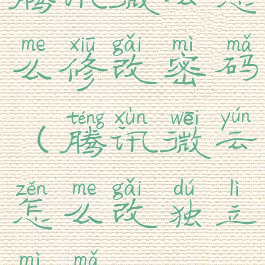 腾讯微云怎
me xiū gǎi mì mǎ
么修改密码
téng xùn wēi yún
（腾讯微云
zěn me gǎi dú lì
怎么改独立
mì mǎ